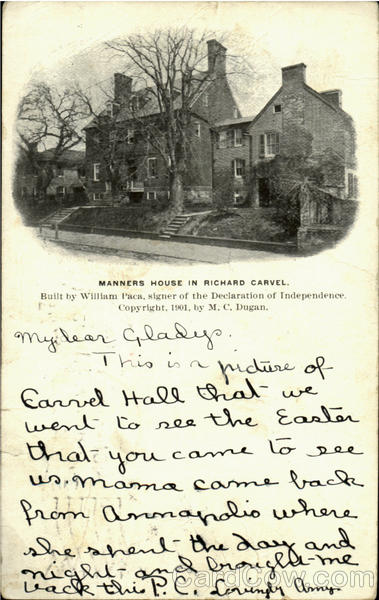 MANNERS HOUSE IN RICHARD CARVEL.
Built by William Paca, signer of the Declaration of Independence.
Copyright, 1901, by M. C. Dugan.
My dear Gladys.
This is a picture of
Carvel Hall that we
went to see the Easter
that you came to see
us. Mama came back
from Annapolis where
she spent the day and
night and brought me
back this P. C. Lovingly Amy.
CardCow.com